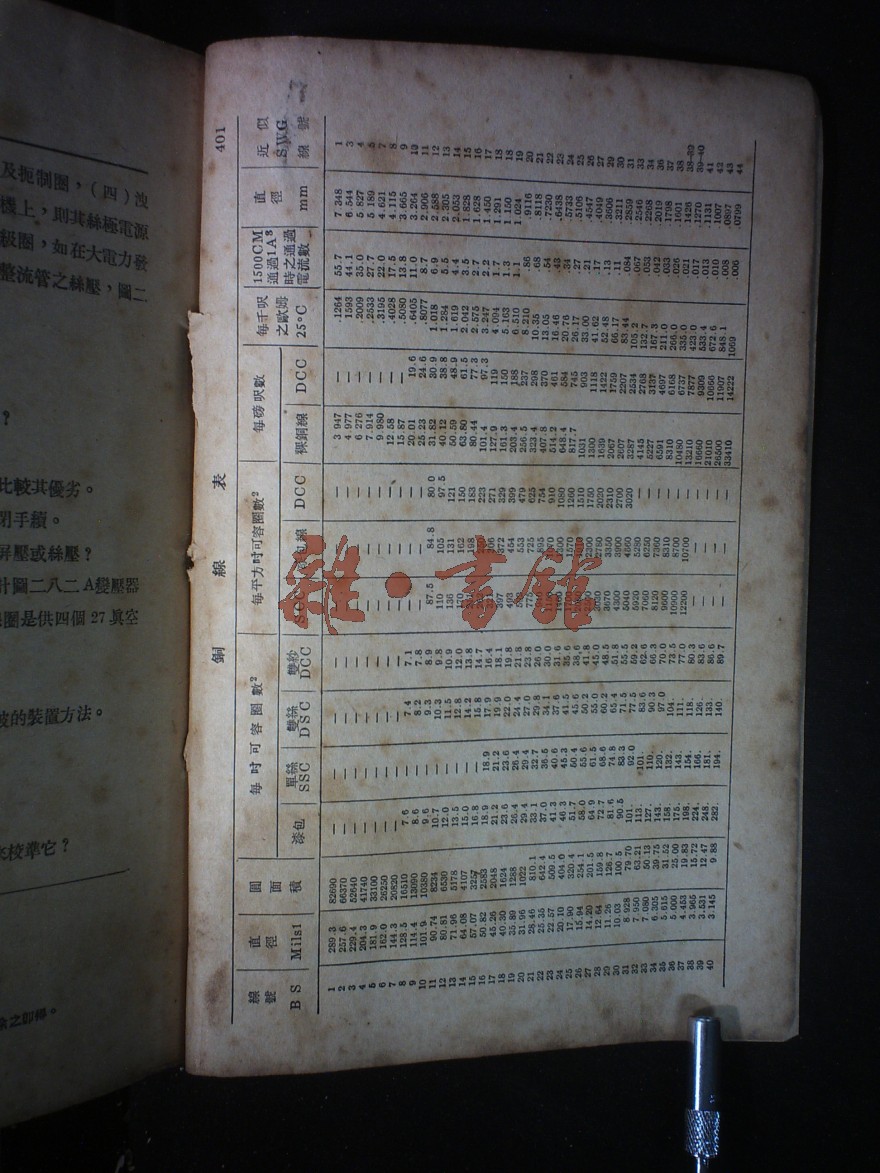 及扼制圈，(四)洩
機上，則其絲極電源
級圈，如在大電力發
整流管之絲壓，圖二
？
比較其優劣。
閉手續。
屏壓或絲壓？
計圖二八二A變壓器
圈是供四個27眞空
波的裝置方法。
來校準它？
余之卽得。
401
銅 線 表
線號 B S 直徑 Mils1 圓面積 每吋可容圈數2 漆包 單絲 SSC 雙絲 DSC 雙紗 DCC 每平方吋可容圈數2 SCC 漆包線 DCC 每磅呎數 裸銅線 DCC 每千呎之歐姆 25°C 1500CM 通過1A3 時之通過電流數 直徑 mm 近似 SWG 線號
1 289.3 82690 — — — — — — — 3.947 — .1264 55.7 7.348 1
2 257.6 66370 — — — — — — — 4.977 — .1593 44.1 6.544 3
3 229.4 52640 — — — — — — — 6.276 — .2009 35.0 5.827 4
4 204.3 41740 — — — — — — — 7.914 — .2533 27.7 5.189 5
5 181.9 33100 — — — — — — — 9.980 — .3195 22.0 4.621 7
6 162.0 26250 — — — — — — — 12.58 — .4028 17.5 4.115 8
7 144.3 20820 — — — — — — — 15.87 — .5080 13.8 3.665 9
8 128.5 16510 7.6 — 7.4 7.1 — — — 20.01 19.6 .6405 11.0 3.264 10
9 114.4 13090 8.6 — 8.2 7.8 — — — 25.23 24.6 .8077 8.7 2.906 11
10 101.9 10380 9.6 — 9.3 8.9 87.5 84.8 80.0 31.82 30.9 1.018 6.9 2.588 12
11 90.74 8234 10.7 — 10.3 9.8 110 105 97.5 40.12 38.8 1.284 5.5 2.305 13
12 80.81 6530 12.0 — 11.5 10.9 136 131 121 50.59 48.9 1.619 4.4 2.053 14
13 71.96 5178 13.5 — 12.8 12.0 170 162 150 63.80 61.5 2.042 3.5 1.828 15
14 64.08 4107 15.0 — 14.2 13.8 198 183 80.44 77.3 2.575 2.7 1.628 16
15 57.07 3257 16.8 — 15.8 14.7 223 101.4 97.3 3.247 2.2 1.450 17
16 50.82 2583 18.9 18.9 17.9 16.4 306 271 127.9 119 4.094 1.7 1.291 18
17 45.26 2048 21.2 21.2 19.9 18.1 397 372 329 161.3 150 5.163 1.3 1.150 18
18 40.30 1624 23.6 23.6 22.0 19.8 493 454 399 203.4 188 6.510 1.1 1.024 19
19 35.89 1288 26.4 26.4 24.4 21.8 553 479 256.5 237 8.210 .86 .9116 20
20 31.96 1022 29.4 29.4 27.0 23.8 775 725 625 323.4 298 10.35 .68 .8118 21
21 28.46 810.1 33.1 32.7 29.8 26.0 895 754 407.8 370 13.05 .54 .7230 22
22 25.35 642.4 37.0 36.5 34.1 30.0 1150 1070 910 514.2 461 16.46 .43 .6438 23
23 22.57 509.5 41.3 40.6 37.6 31.6 1400 1300 1080 648.4 584 20.76 .34 .5733 24
24 20.10 404.0 46.3 45.3 41.5 35.6 1700 1570 1260 817.7 745 26.17 .27 .5106 25
25 17.90 320.4 51.7 50.4 45.6 38.6 1910 1510 1031 903 33.00 .21 .4547 26
26 15.94 254.1 58.0 55.6 50.2 41.8 2300 1750 1300 1118 41.62 .17 .4049 27
27 14.20 201.5 64.9 61.5 55.0 45.0 3030 2780 2020 1639 1422 52.48 .13 .3606 29
28 12.64 159.8 72.7 68.6 60.2 48.5 3670 3350 2310 2067 1759 66.17 .11 .3211 30
29 11.26 126.7 81.6 74.8 65.4 51.8 4300 3900 2700 2607 2207 83.44 .084 .2859 31
30 10.03 100.5 90.5 83.3 71.5 55.5 5040 4660 3020 3287 2534 105.2 .067 .2546 33
31 8.928 79.70 101. 92.0 77.5 59.2 5920 5280 — 4145 2768 132.7 .053 .2268 34
32 7.950 63.21 113. 101. 83.6 62.6 7060 6250 — 5227 3137 167.3 .042 .2019 36
33 7.080 50.13 127. 110. 90.3 66.3 8120 7360 — 6591 4697 211.0 .033 .1798 37
34 6.305 39.75 143. 120. 97.0 70.0 9600 8310 — 8310 6168 266.0 .026 .1601 38
35 5.615 31.52 158. 132. 104. 73.5 10900 8700 — 10480 6737 335.0 .021 .1426 38-39
36 5.000 25.00 175. 143. 111. 77.0 12200 10700 — 13210 7877 423.0 .017 .1270 39-40
37 4.453 19.83 198. 154. 118. 80.3 — — — 16660 9309 533.4 .013 .1131 41
38 3.965 15.72 224. 166. 126. 83.6 — — — 21010 10666 672.6 .010 .1007 42
39 3.531 12.47 248. 181. 133. 86.6 — — — 26500 11907 848.1 .008 .0897 43
40 3.145 9.88 282. 194. 140. 89.7 — — — 33410 14222 1069 .006 .0799 44
雜·書館